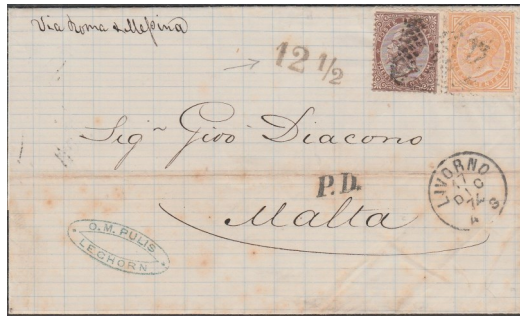 Via Roma & Messina
12 1/2
Sig.r Giov Diacono
P.D.
Malta
LIVORNO
O.M. PULIS
LEGHORN